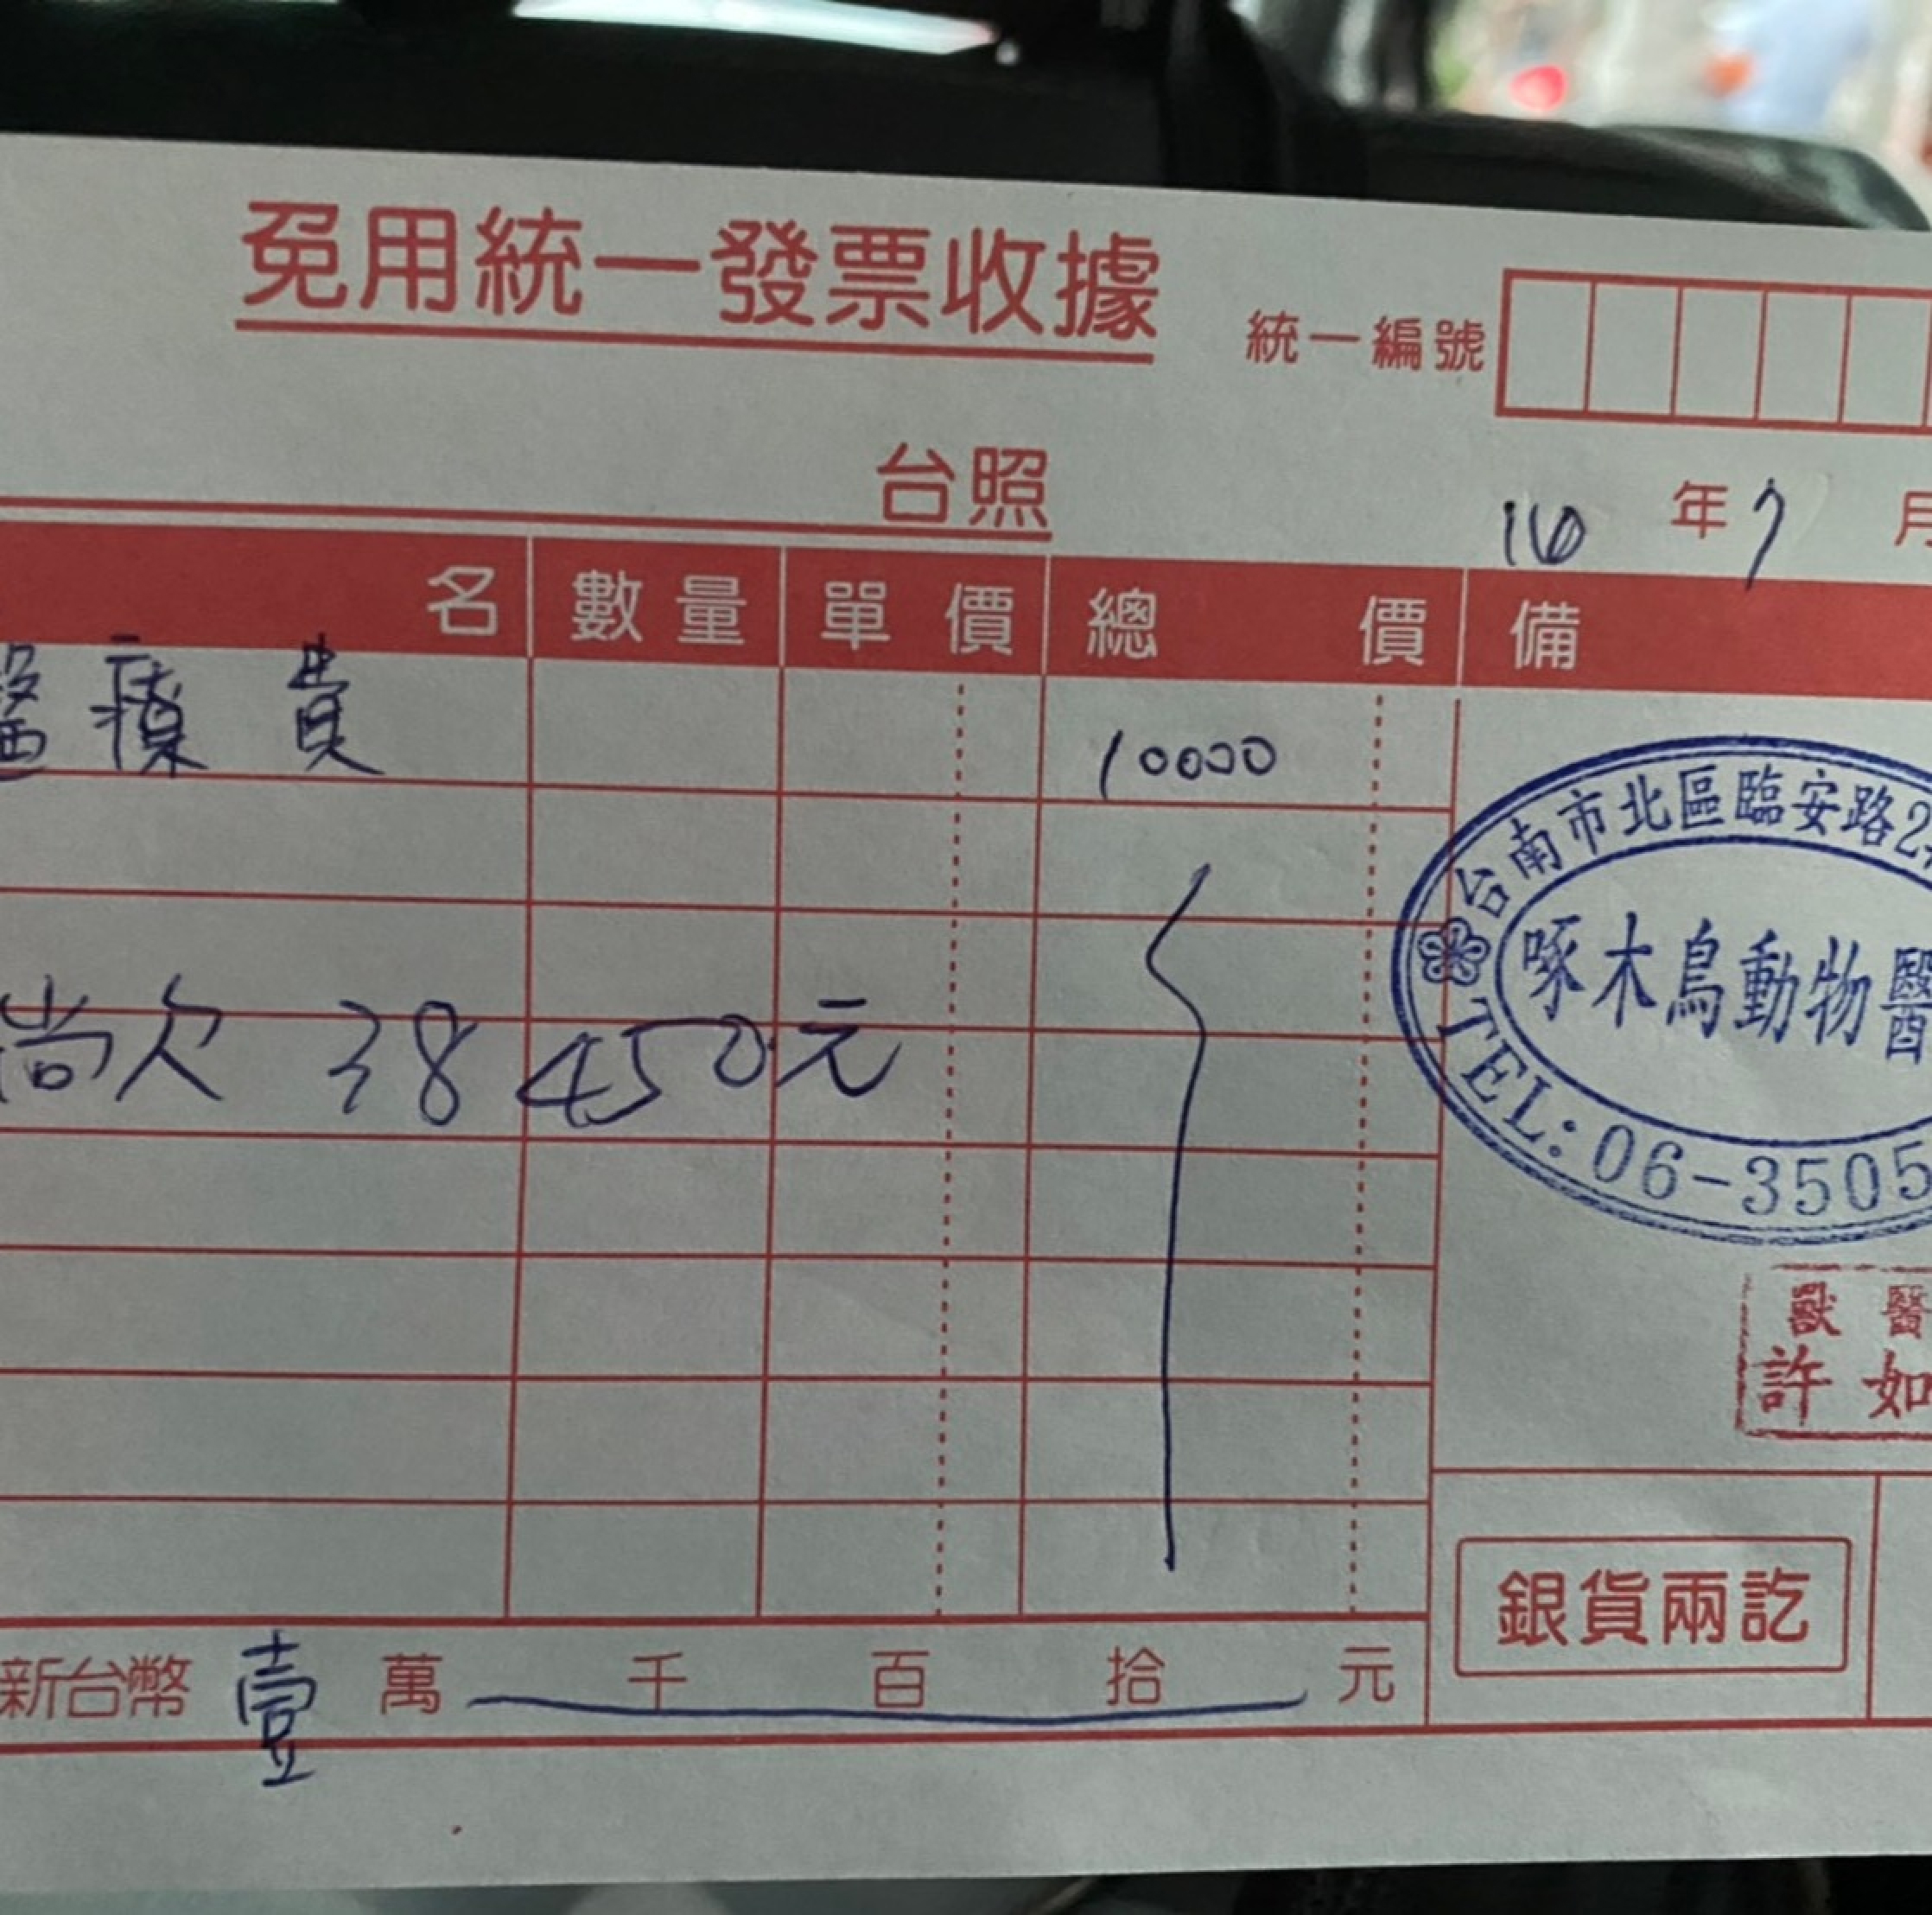 免用統一發票收據
統一編號
台照
年7月
名 數量 單價 總價 備
醫療費 10000
尚欠 38450元
台南市北區臨安路2
啄木鳥動物醫
TEL:06-3505
獸醫
許如
銀貨兩訖
新台幣壹萬千百拾元